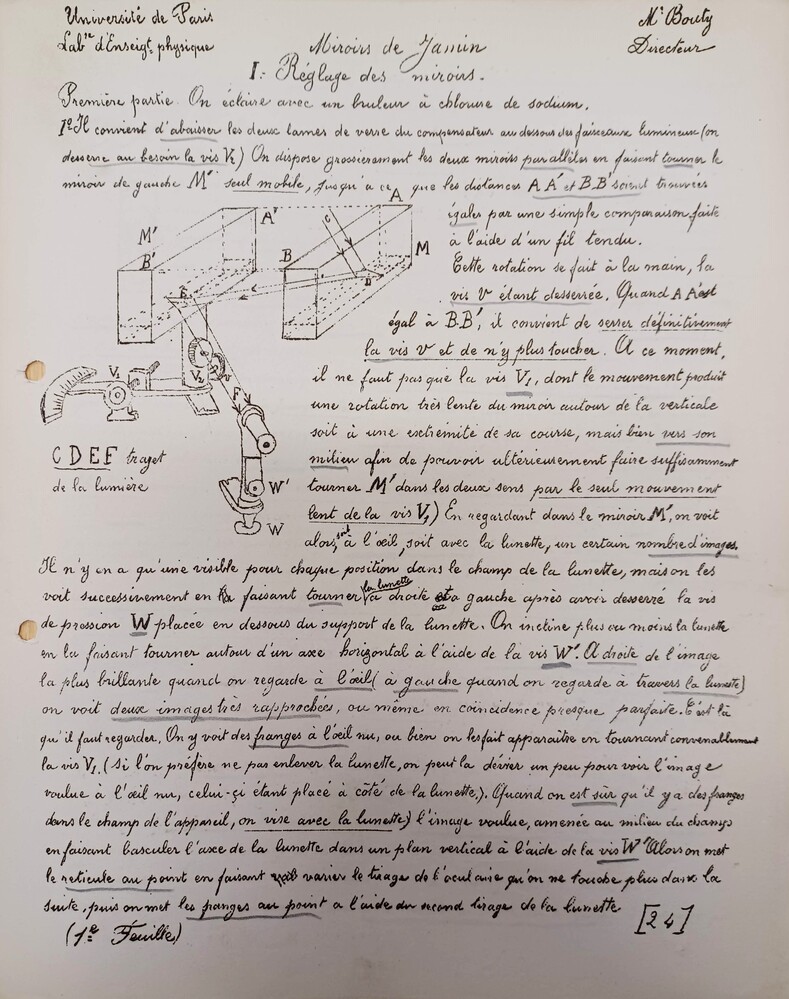 Université de Paris
Mr Bouty
Labre d'Enseigt physique
Directeur
Miroirs de Jamin
I:- Réglage des miroirs.
Première partie. On éclaire avec un bruleur à chlorure de sodium.
1º Il convient d'abaisser les deux lames de verre du compensateur au dessous des faisceaux lumineux (on
desserre au besoin la vis V2) On dispose grossièrement les deux miroirs parallèles en faisant tourner le
miroir de gauche M' seul mobile, jusqu'a ce que les distances AA' et B.B' soient trouvées
égales par une simple comparaison faite
à l'aide d'un fil tendu.
Cette rotation se fait à la main, la
vis v étant desserrée. Quand A A' est
égal à B.B', il convient de serrer définitivement
la vis v et de n'y plus toucher. A ce moment,
il ne faut pas que la vis V1, dont le mouvement produit
une rotation très lente du miroir autour de la verticale
soit à une extrémité de sa course, mais bien vers son
milieu afin de pouvoir ultérieurement faire suffisamment
tourner M' dans les deux sens par le seul mouvement
lent de la vis V1) En regardant dans le miroir M', on voit
alors, soit à l'œil, soit avec la lunette, un certain nombre d'images.
A
A'
C
M'
B'
B
M
D
E
V1
V2
v
F
W'
W
C D E F trajet
de la lumière
Il n'y en a qu'une visible pour chaque position dans le champ de la lunette, mais on les
voit successivement en faisant tourner la lunette à droite ou a gauche après avoir desserré la vis
de pression W placée en dessous du support de la lunette. On incline plus ou moins la lunette
en la faisant tourner autour d'un axe horizontal à l'aide de la vis W'. A droite de l'image
la plus brillante quand on regarde à l'œil (à gauche quand on regarde à travers la lunette)
on voit deux images très rapprochées, ou même en coïncidence presque parfaite. C'est là
qu'il faut regarder. On y voit des franges à l'œil nu, ou bien on les fait apparaître en tournant convenablement
la vis V1. (Si l'on préfère ne pas enlever la lunette, on peut la dévier un peu pour voir l'image
voulue à l'œil nu, celui-çi étant placé à côté de la lunette.). Quand on est sûr qu'il y a des franges
dans le champ de l'appareil, on vise avec la lunette) l'image voulue, amenée au milieu du champ
en faisant basculer l'axe de la lunette dans un plan vertical à l'aide de la vis W' Alors on met
le reticule au point en faisant varier le tirage de l'oculaire qu'on ne touche plus dans la
suite, puis on met les franges au point a l'aide du second tirage de la lunette
[24]
(1e Feuille)